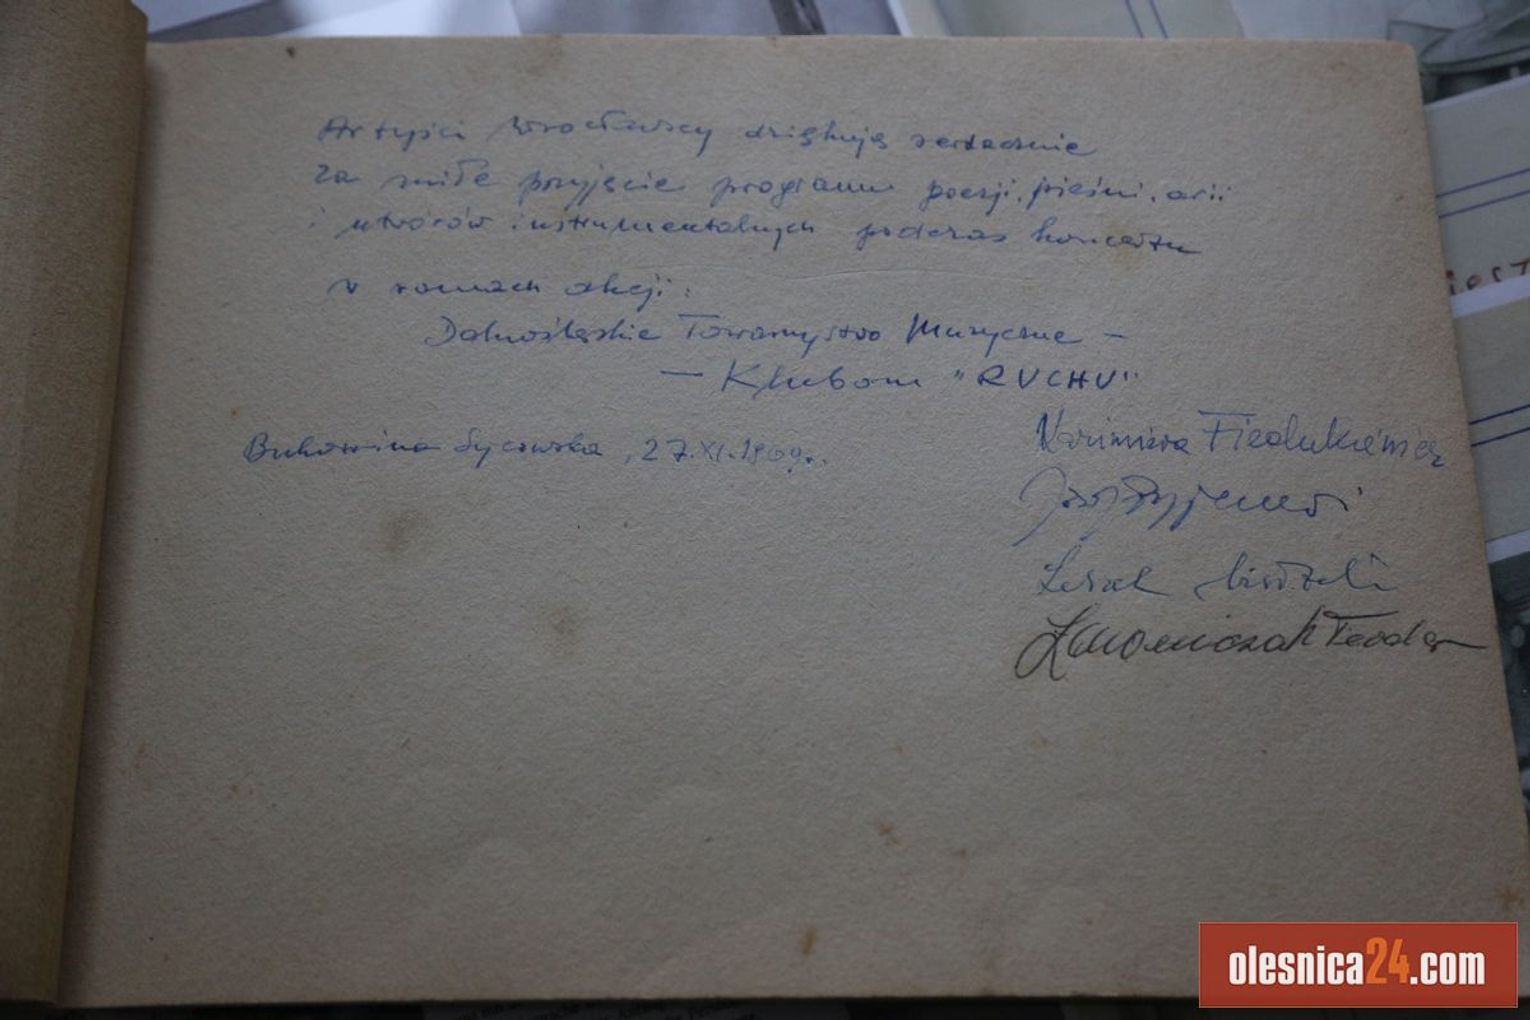 Artyści Wrocławscy dziękują serdecznie
za miłe przyjęcie programu poezji, pieśni, arii
i utworów instrumentalnych podczas koncertu
w ramach akcji:
Dolnośląskie Towarzystwo Muzyczne –
– Klubom "RUCHU"
Bukowina Sycowska, 27.XI.1969r.
Kazimiera Fiedukiewicz
Leszek
Ławoniczak Teodor
olesnica24.com